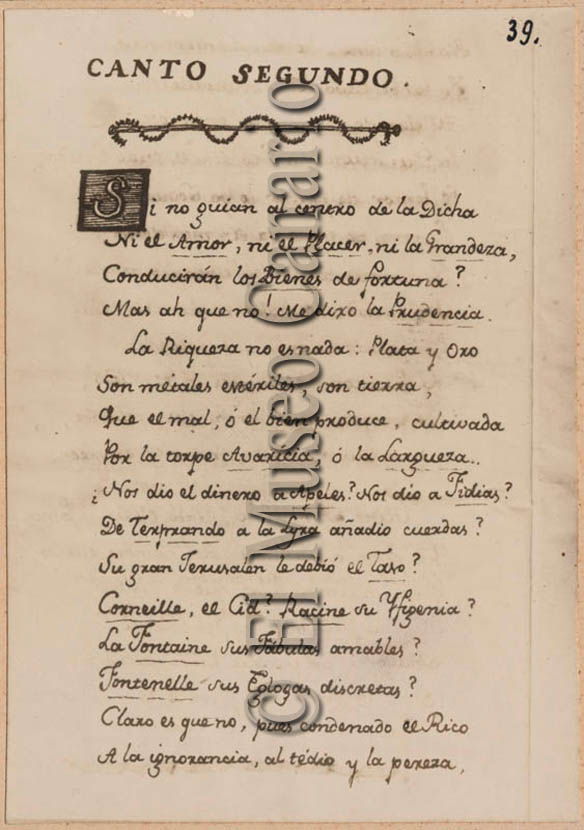 39.
CANTO SEGUNDO.
Si no guian al centro de la Dicha
Ni el Amor, ni el Placer, ni la Grandeza,
Conducirán los Bienes de fortuna?
Mas ah que no! Me dixo la Prudencia.
La Riqueza no es nada: Plata y Oro
Son métales estériles, son tierra,
Que el mal, ó el bien produce, cultivada
Por la torpe Avaricia, ó la Largueza..
¿Nos dio el dinero a Apeles? Nos dio a Fidias?
De Terprando a la Lyra añadio cuerdas?
Su gran Jerusalen le debió el Taso?
Corneille, el Cid? Racine su Yfigenia?
La Fontaine sus Fábulas amables?
Fontenelle sus Eglogas discretas?
Claro es que no, pues condenado el Rico
A la ignorancia, al tédio y la pereza,
© El Museo Canario